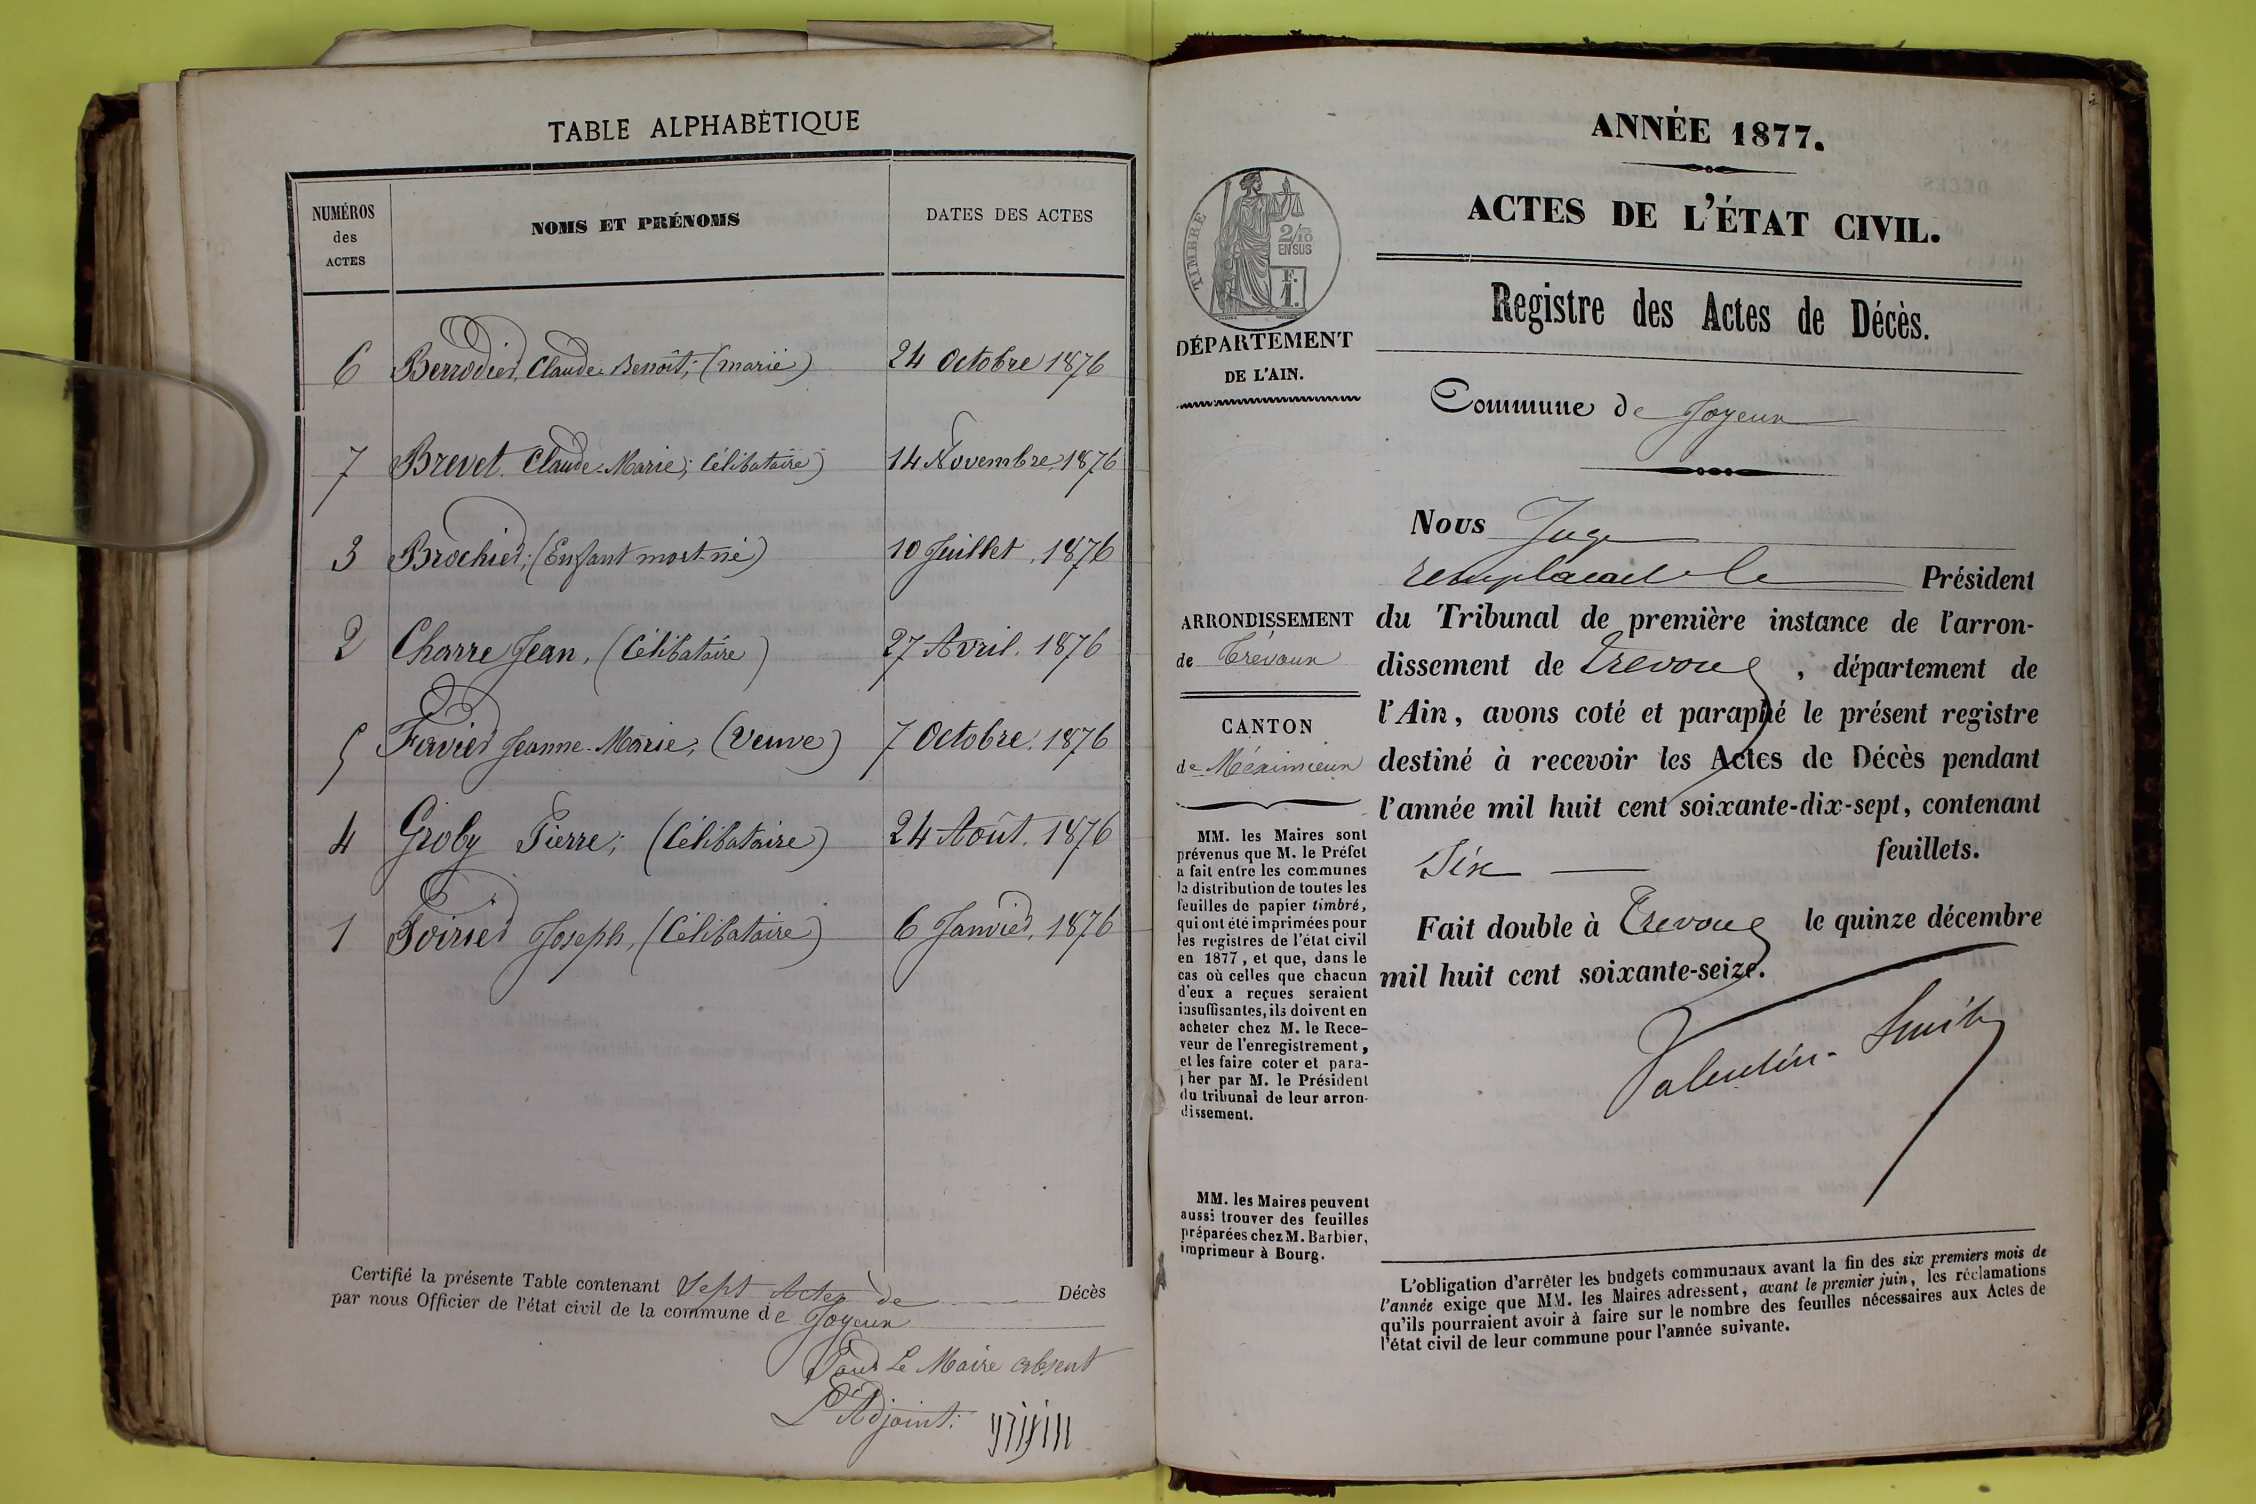 TABLE ALPHABÉTIQUE
NUMÉROS
des
ACTES
NOMS ET PRÉNOMS
DATES DES ACTES
6 Berrodier, Claude Benoît; (marié) 24 Octobre 1876
7 Brevet Claude-Marie; Célibataire) 14 Novembre 1876
3 Brochier; (Enfant mort-né) 10 Juillet, 1876
2 Charre Jean, (Célibataire) 27 Avril. 1876
5 Jeanne-Marie, (Veuve) 7 Octobre. 1876
4 Groby Pierre; (Célibataire) 24 Août. 1876
1 Poirier Joseph, (Célibataire) 6 Janvier, 1876
Certifié la présente Table contenant Sept Actes de Décès
par nous Officier de l'état civil de la commune de Joyeux
Pour Le Maire absent
L'Adjoint:
ANNÉE 1877.
ACTES DE L'ÉTAT CIVIL.
Registre des Actes de Décès.
TIMBRE
2/10
EN SUS
F.
1.
DÉPARTEMENT
DE L'AIN.
Commune de Joyeux
Nous Juge
remplaçant le Président
du Tribunal de première instance de l'arron-
dissement de Trevoux, département de
l'Ain, avons coté et paraphé le présent registre
destiné à recevoir les Actes de Décès pendant
l'année mil huit cent soixante-dix-sept, contenant
Six feuillets.
Fait double à Trevoux le quinze décembre
mil huit cent soixante-seize.
Valentin-Smith
ARRONDISSEMENT
de Trévoux
CANTON
de Méximieux
MM. les Maires sont
prévenus que M. le Préfet
a fait entre les communes
la distribution de toutes les
feuilles de papier timbré,
qui ont été imprimées pour
les registres de l'état civil
en 1877, et que, dans le
cas où celles que chacun
d'eux a reçues seraient
insuffisantes, ils doivent en
acheter chez M. le Rece-
veur de l'enregistrement,
et les faire coter et para-
pher par M. le Président
du tribunal de leur arron-
dissement.
MM. les Maires peuvent
aussi trouver des feuilles
préparées chez M. Barbier,
imprimeur à Bourg.
L'obligation d'arrêter les budgets communaux avant la fin des six premiers mois de
l'année exige que MM. les Maires adressent, avant le premier juin, les réclamations
qu'ils pourraient avoir à faire sur le nombre des feuilles nécessaires aux Actes de
l'état civil de leur commune pour l'année suivante.